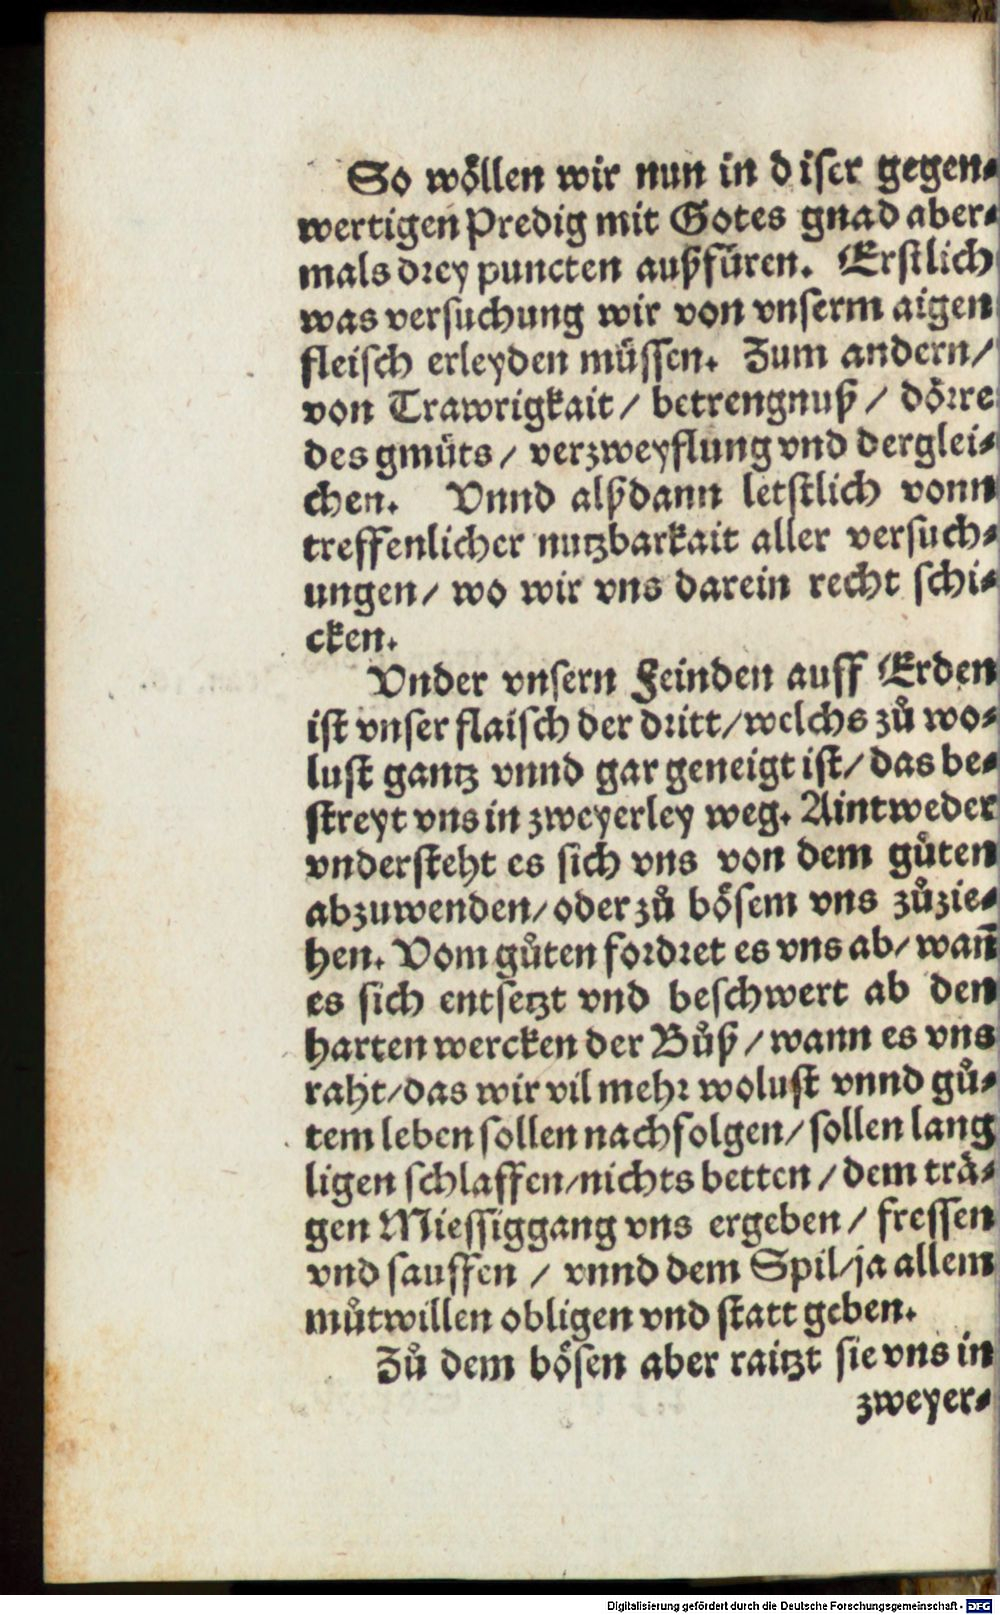 So woͤllen wir nun in diser gegen⸗
wertigen Predig mit Gotes gnad aber⸗
mals drey puncten außfuͤren. Erstlich
was versuchung wir von vnserm aigen
fleisch erleyden muͤssen. Zum andern/
von Trawrigkait / betrengnuß / doͤrre
des gmuͤts / verzweyflung vnd derglei⸗
chen. Vnnd alßdann letstlich vonn
treffenlicher nutzbarkait aller versuch⸗
ungen / wo wir vns darein recht schi⸗
cken.
Vnder vnsern Feinden auff Erden
ist vnser flaisch der dritt / welchs zuͦ wo⸗
lust gantz vnnd gar geneigt ist / das be⸗
streyt vns in zweyerley weg. Aintweder
vndersteht es sich vns von dem guͦten
abzuwenden / oder zuͦ boͤsem vns zuͦzie⸗
hen. Vom guͦten fordret es vns ab / wañ
es sich entsetzt vnd beschwert ab den
harten wercken der Buͦß / wann es vns
raht / das wir vil mehr wolust vnnd guͦ⸗
tem leben sollen nachfolgen / sollen lang
ligen schlaffen / nichts betten / dem traͤ⸗
gen Miessiggang vns ergeben / fressen
vnd sauffen / vnnd dem Spil / ja allem
muͦtwillen obligen vnd statt geben.
Zuͦ dem boͤsen aber raitzt sie vns in
zweyer⸗
Digitalisierung gefördert durch die Deutsche Forschungsgemeinschaft - DFG